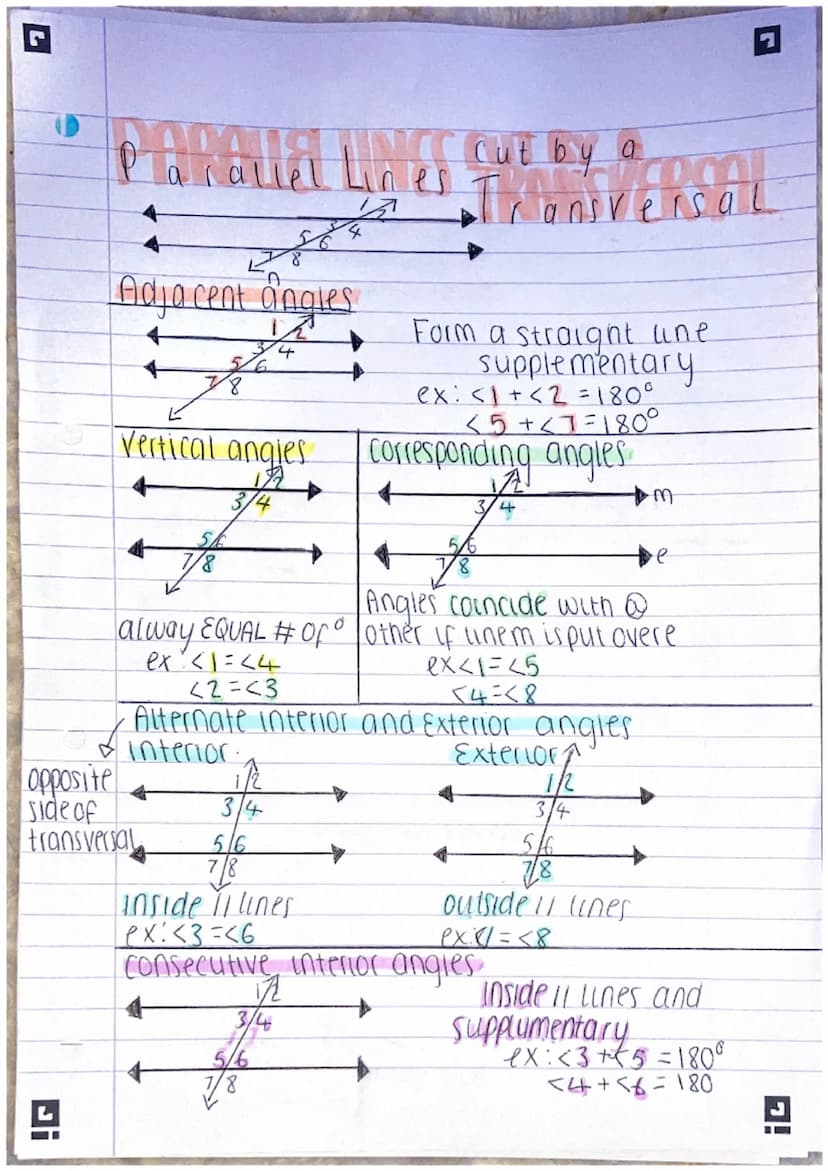 Parallel Lines cut by a
Transversal
1 2
3 4
5 6
7 8
n
Adjacent angles
1 2
3 4
5 6
7 8
Form a straight line
supplementary
ex: <1 + <2 = 180°
<5 + <7 = 180°
Vertical angies
1 2
3 4
5 6
7 8
alway EQUAL # of °
ex: <1 = <4
<2 = <3
Corresponding angles
1 2
3 4
m
5 6
7 8
e
Angles coincide with @
other if linem is put overe
ex <1 = <5
<4 = <8
Alternate interior and Exterior angles
opposite
side of
transversal
Interior.
1 2
3 4
5 6
7 8
inside // lines
ex: <3 = <6
Exterior
1 2
3 4
5 6
7 8
outside // lines
ex: <1 = <8
consecutive interior angles
1 2
3 4
5 6
7 8
Inside // lines and
Supplumentary
ex: <3 + <5 = 180°
<4 + <6 = 180